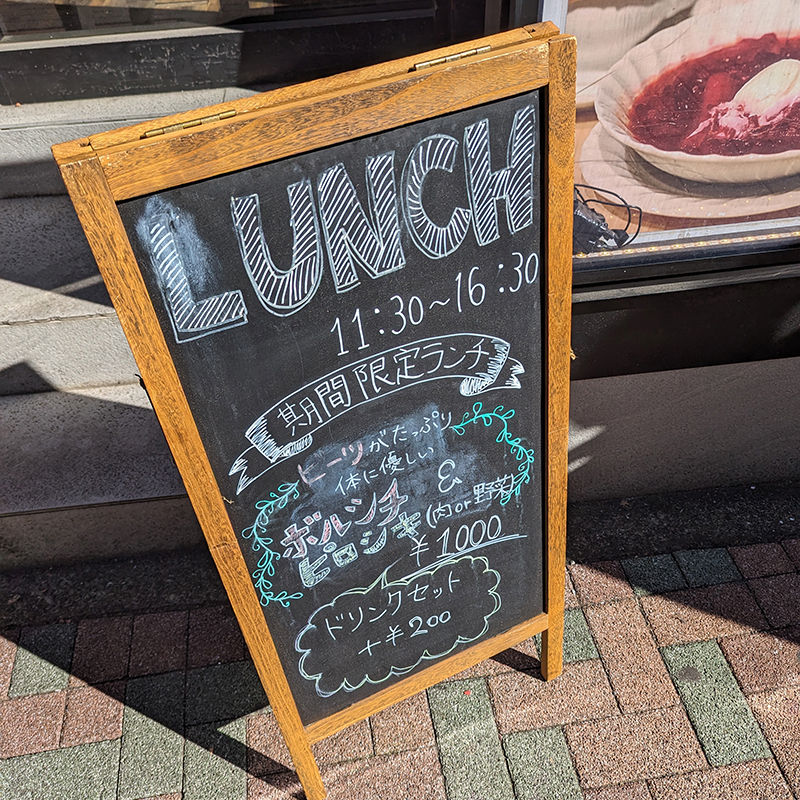 LUNCH
11:30~16:30
期間限定ランチ
ビーツがたっぷり
体に優しい
ボルシチ &
ピロシキ (肉or野菜)
¥1000
ドリンクセット
+¥200